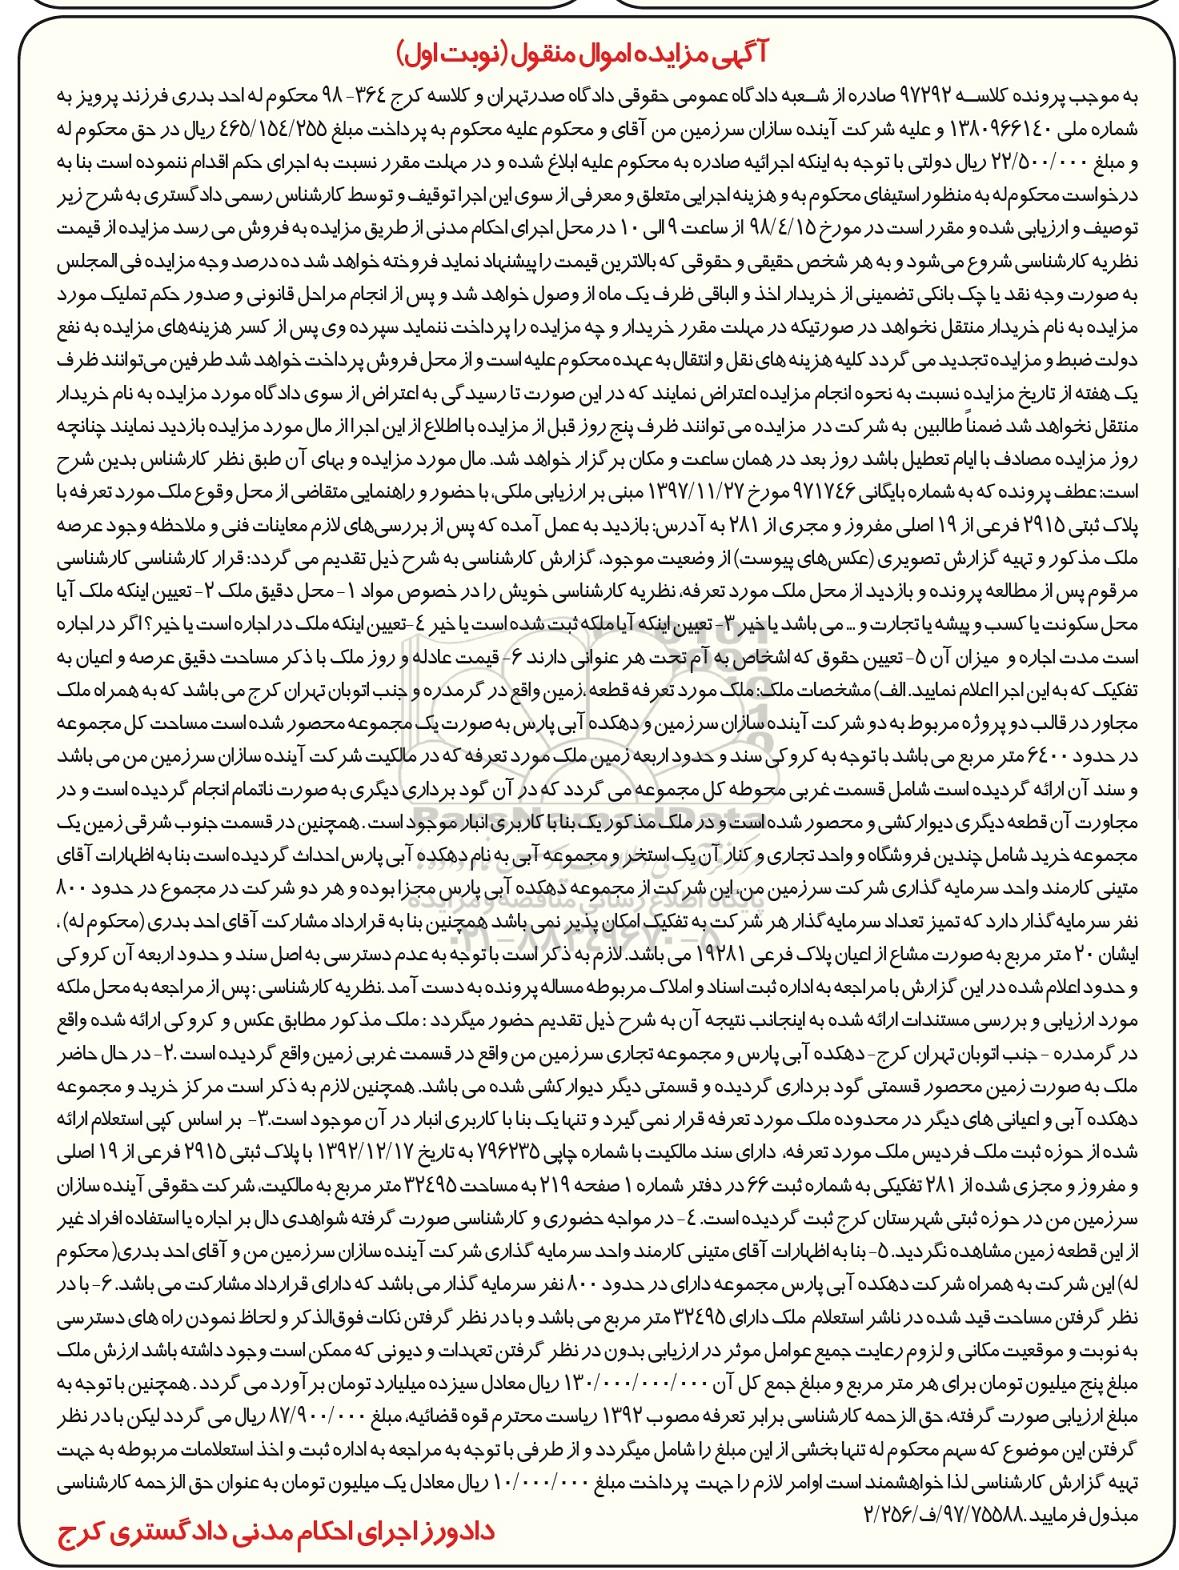 آگهی مزایده اموال منقول (نوبت اول)
به موجب پرونده کلاســه ۹۷۲۹۲ صادره از شــعبه دادگاه عمومی حقوقی دادگاه صدرتهران و کلاسه کرج ۳۶۴- ۹۸ محکوم له احد بدری فرزند پرویز به
شماره ملی ۱۳۸۰۹۶۶۱۴۰ و علیه شرکت آینده سازان سرزمین من آقای و محکوم علیه محکوم به پرداخت مبلغ ۴۶۵/۱۵۴/۲۵۵ ریال در حق محکوم له
و مبلغ ۲۲/۵۰۰/۰۰۰ ریال دولتی با توجه به اینکه اجرائیه صادره به محکوم علیه ابلاغ شده و در مهلت مقرر نسبت به اجرای حکم اقدام ننموده است بنا به
درخواست محکوم‌له به منظور استیفای محکوم به و هزینه اجرایی متعلق و معرفی از سوی این اجرا توقیف و توسط کارشناس رسمی دادگستری به شرح زیر
توصیف و ارزیابی شده و مقرر است در مورخ ۹۸/۴/۱۵ از ساعت ۹ الی ۱۰ در محل اجرای احکام مدنی از طریق مزایده به فروش می رسد مزایده از قیمت
نظریه کارشناسی شروع می‌شود و به هر شخص حقیقی و حقوقی که بالاترین قیمت را پیشنهاد نماید فروخته خواهد شد ده درصد وجه مزایده فی المجلس
به صورت وجه نقد یا چک بانکی تضمینی از خریدار اخذ و الباقی ظرف یک ماه از وصول خواهد شد و پس از انجام مراحل قانونی و صدور حکم تملیک مورد
مزایده به نام خریدار منتقل نخواهد در صورتیکه در مهلت مقرر خریدار و چه مزایده را پرداخت ننماید سپرده وی پس از کسر هزینه‌های مزایده به نفع
دولت ضبط و مزایده تجدید می گردد کلیه هزینه های نقل و انتقال به عهده محکوم علیه است و از محل فروش پرداخت خواهد شد طرفین می‌توانند ظرف
یک هفته از تاریخ مزایده نسبت به نحوه انجام مزایده اعتراض نمایند که در این صورت تا رسیدگی به اعتراض از سوی دادگاه مورد مزایده به نام خریدار
منتقل نخواهد شد ضمناً طالبین به شرکت در مزایده می توانند ظرف پنج روز قبل از مزایده با اطلاع از این اجرا از مال مورد مزایده بازدید نمایند چنانچه
روز مزایده مصادف با ایام تعطیل باشد روز بعد در همان ساعت و مکان برگزار خواهد شد. مال مورد مزایده و بهای آن طبق نظر کارشناس بدین شرح
است: عطف پرونده که به شماره بایگانی ۹۷۱۷۴۶ مورخ ۱۳۹۷/۱۱/۲۷ مبنی بر ارزیابی ملکی، با حضور و راهنمایی متقاضی از محل وقوع ملک مورد تعرفه با
پلاک ثبتی ۲۹۱۵ فرعی از ۱۹ اصلی مفروز و مجری از ۲۸۱ به آدرس: بازدید به عمل آمده که پس از بررسی‌های لازم معاینات فنی و ملاحظه وجود عرصه
ملک مذکور و تهیه گزارش تصویری (عکس‌های پیوست) از وضعیت موجود، گزارش کارشناسی به شرح ذیل تقدیم می گردد: قرار کارشناسی کارشناسی
مرقوم پس از مطالعه پرونده و بازدید از محل ملک مورد تعرفه، نظریه کارشناسی خویش را در خصوص مواد ۱- محل دقیق ملک ۲- تعیین اینکه ملک آیا
محل سکونت یا کسب و پیشه یا تجارت و ... می باشد یا خیر ۳- تعیین اینکه آیا ملکه ثبت شده است یا خیر ۴-تعیین اینکه ملک در اجاره است یا خیر؟ اگر در اجاره
است مدت اجاره و میزان آن ۵- تعیین حقوق که اشخاص به آم تحت هر عنوانی دارند ۶- قیمت عادله و روز ملک با ذکر مساحت دقیق عرصه و اعیان به
تفکیک که به این اجرا اعلام نمایید. الف) مشخصات ملک: ملک مورد تعرفه قطعه ،زمین واقع در گرمدره و جنب اتوبان تهران کرج می باشد که به همراه ملک
مجاور در قالب دو پروژه مربوط به دو شرکت آینده سازان سرزمین و دهکده آبی پارس به صورت یک مجموعه محصور شده است مساحت کل مجموعه
در حدود ۶۴۰۰ متر مربع می باشد با توجه به کروکی سند و حدود اربعه زمین ملک مورد تعرفه که در مالکیت شرکت آینده سازان سرزمین من می باشد
و سند آن ارائه گردیده است شامل قسمت غربی محوطه کل مجموعه می گردد که در آن گود برداری دیگری به صورت ناتمام انجام گردیده است و در
مجاورت آن قطعه دیگری دیوارکشی و محصور شده است و در ملک مذکور یک بنا با کاربری انبار موجود است . همچنین در قسمت جنوب شرقی زمین یک
مجموعه خرید شامل چندین فروشگاه و واحد تجاری و کنار آن یک استخر و مجموعه آبی به نام دهکده آبی پارس احداث گردیده است بنا به اظهارات آقای
متینی کارمند واحد سرمایه گذاری شرکت سرزمین من، این شرکت از مجموعه دهکده آبی پارس مجزا بوده و هر دو شرکت در مجموع در حدود ۸۰۰
نفر سرمایه گذار دارد که تمیز تعداد سرمایه گذار هر شرکت به تفکیک امکان پذیر نمی باشد همچنین بنا به قرارداد مشارکت آقای احد بدری (محکوم له) ،
ایشان ۲۰ متر مربع به صورت مشاع از اعیان پلاک فرعی ۱۹۲۸۱ می باشد. لازم به ذکر است با توجه به عدم دسترسی به اصل سند و حدود اربعه آن کروکی
و حدود اعلام شده در این گزارش با مراجعه به اداره ثبت اسناد و املاک مربوطه مساله پرونده به دست آمد .نظریه کارشناسی : پس از مراجعه به محل ملکه
مورد ارزیابی و بررسی مستندات ارائه شده به اینجانب نتیجه آن به شرح ذیل تقدیم حضور میگردد : ملک مذکور مطابق عکس و کروکی ارائه شده واقع
در گرمدره - جنب اتوبان تهران کرج- دهکده آبی پارس و مجموعه تجاری سرزمین من واقع در قسمت غربی زمین واقع گردیده است .۲- در حال حاضر
ملک به صورت زمین محصور قسمتی گود برداری گردیده و قسمتی دیگر دیوارکشی شده می باشد. همچنین لازم به ذکر است مرکز خرید و مجموعه
دهکده آبی و اعیانی های دیگر در محدوده ملک مورد تعرفه قرار نمی گیرد و تنها یک بنا با کاربری انبار در آن موجود است.۳- بر اساس کپی استعلام ارائه
شده از حوزه ثبت ملک فردیس ملک مورد تعرفه، دارای سند مالکیت با شماره چاپی ۷۹۶۲۳۵ به تاریخ ۱۳۹۲/۱۲/۱۷ با پلاک ثبتی ۲۹۱۵ فرعی از ۱۹ اصلی
و مفروز و مجزی شده از ۲۸۱ تفکیکی به شماره ثبت ۶۶ در دفتر شماره ۱ صفحه ۲۱۹ به مساحت ۳۲۴۹۵ متر مربع به مالکیت، شرکت حقوقی آینده سازان
سرزمین من در حوزه ثبتی شهرستان کرج ثبت گردیده است. ۴- در مواجه حضوری و کارشناسی صورت گرفته شواهدی دال بر اجاره یا استفاده افراد غیر
از این قطعه زمین مشاهده نگردید. ۵- بنا به اظهارات آقای متینی کارمند واحد سرمایه گذاری شرکت آینده سازان سرزمین من و آقای احد بدری( محکوم
له) این شرکت به همراه شرکت دهکده آبی پارس مجموعه دارای در حدود ۸۰۰ نفر سرمایه گذار می باشد که دارای قرارداد مشارکت می باشد. ۶- با در
نظر گرفتن مساحت قید شده در ناشر استعلام ملک دارای ۳۲۴۹۵ متر مربع می باشد و با در نظر گرفتن نکات فوق‌الذکر و لحاظ نمودن راه های دسترسی
به نوبت و موقعیت مکانی و لزوم رعایت جمیع عوامل موثر در ارزیابی بدون در نظر گرفتن تعهدات و دیونی که ممکن است وجود داشته باشد ارزش ملک
مبلغ پنج میلیون تومان برای هر متر مربع و مبلغ جمع کل آن ۱۳۰/۰۰۰/۰۰۰/۰۰۰ ریال معادل سیزده میلیارد تومان برآورد می گردد . همچنین با توجه به
مبلغ ارزیابی صورت گرفته، حق الزحمه کارشناسی برابر تعرفه مصوب ۱۳۹۲ ریاست محترم قوه قضائیه، مبلغ ۸۷/۹۰۰/۰۰۰ ریال می گردد لیکن با در نظر
گرفتن این موضوع که سهم محکوم له تنها بخشی از این مبلغ را شامل میگردد و از طرفی با توجه به مراجعه به اداره ثبت و اخذ استعلامات مربوطه به جهت
تهیه گزارش کارشناسی لذا خواهشمند است اوامر لازم را جهت پرداخت مبلغ ۱۰/۰۰۰/۰۰۰ ریال معادل یک میلیون تومان به عنوان حق الزحمه کارشناسی
مبذول فرمایید.۹۷/۷۵۵۸۸/ف/۲/۲۵۶
دادورز اجرای احکام مدنی دادگستری کرج
ParsNamadData
پایگاه اطلاع رسانی مناقصه و مزایده
۰۲۱-۸۸۳۴۹۶۷۰-۵